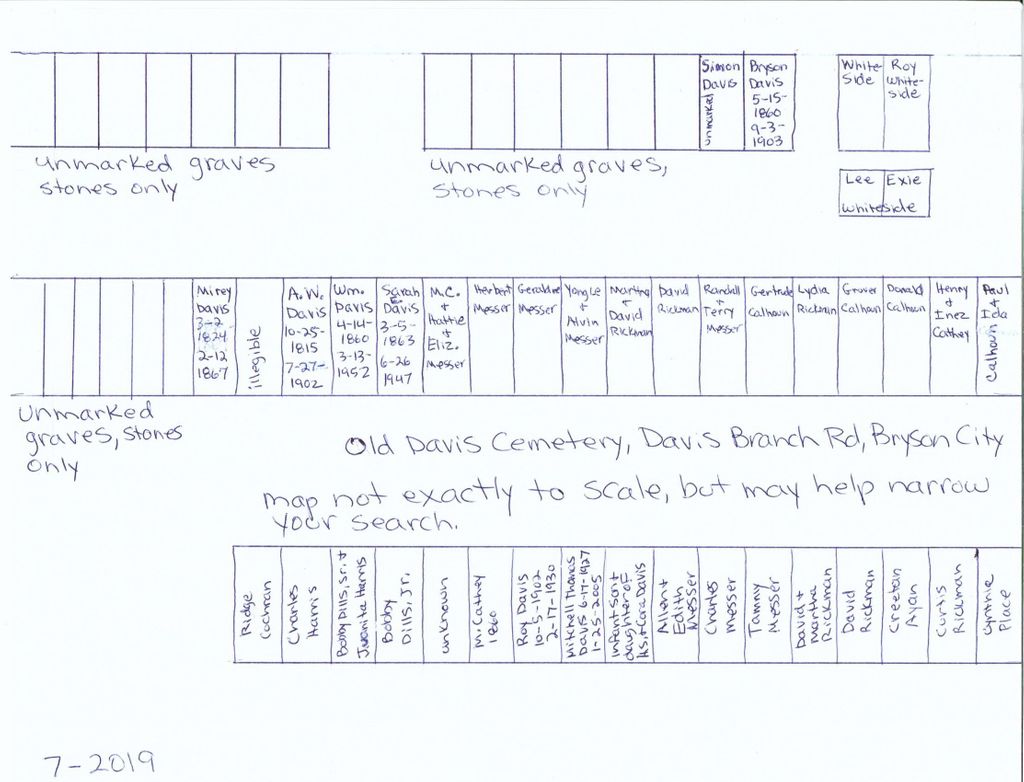 Simon
Davis
unmarked
Bryson
Davis
5-15-
1860
9-3-
1903
White-
side
Roy
White-
side
unmarked graves
stones only
unmarked graves,
stones only
Lee
Exie
Whiteside
Mirey
Davis
3-2
1824
2-12
1867
illegible
A.W.
Davis
10-25-
1815
7-27-
1902
Wm.
Davis
4-14-
1860
3-13-
1952
Sarah
E.
Davis
3-5-
1863
6-26
1947
M.C.
+
Hattie
+
Eliz.
Messer
Herbert
Messer
Geraldine
Messer
Yong Le
+
Alvin
Messer
Martha
+
David
Rickman
David
Rickman
Randall
+
Terry
Messer
Gertrude
Calhoun
Lydia
Rickman
Grover
Calhoun
Donald
Calhoun
Henry
+
Inez
Cathey
Paul
+
Ida
Calhoun
unmarked
graves, stones
only
Old Davis Cemetery, Davis Branch Rd, Bryson City
map not exactly to scale, but may help narrow
your search.
Ridge
Cochran
Charles
Harris
Bobby Dills, Sr. +
Juanita Harris
Bobby
Dills, Jr.
unknown
M. Cathey
1860
Roy Davis
10-5-1902
2-17-1930
Mitchell Thomas
Davis 6-17-1927
1-25-2005
infant son +
daughter of
+ Cora Davis
Allen +
Edith
Messer
Charles
Messer
Tammy
Messer
David +
Martha
Rickman
David
Rickman
Ayan
Curtis
Rickman
Cynthie
Place
7-2019